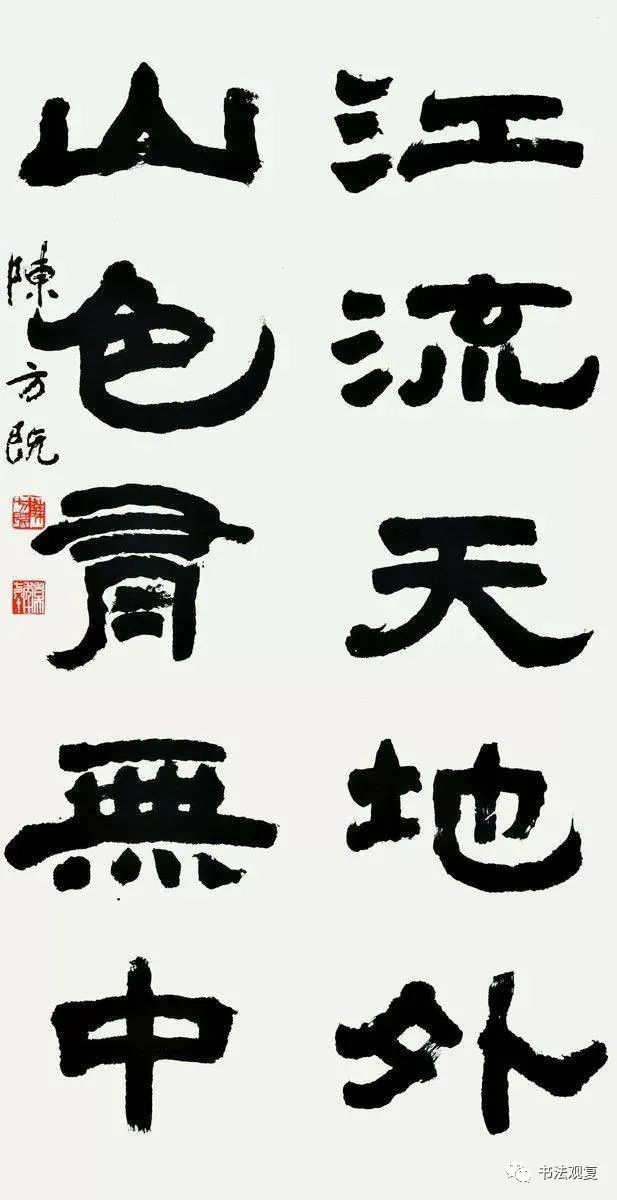 江流天地外
山色有無中
陳方既
书法观复